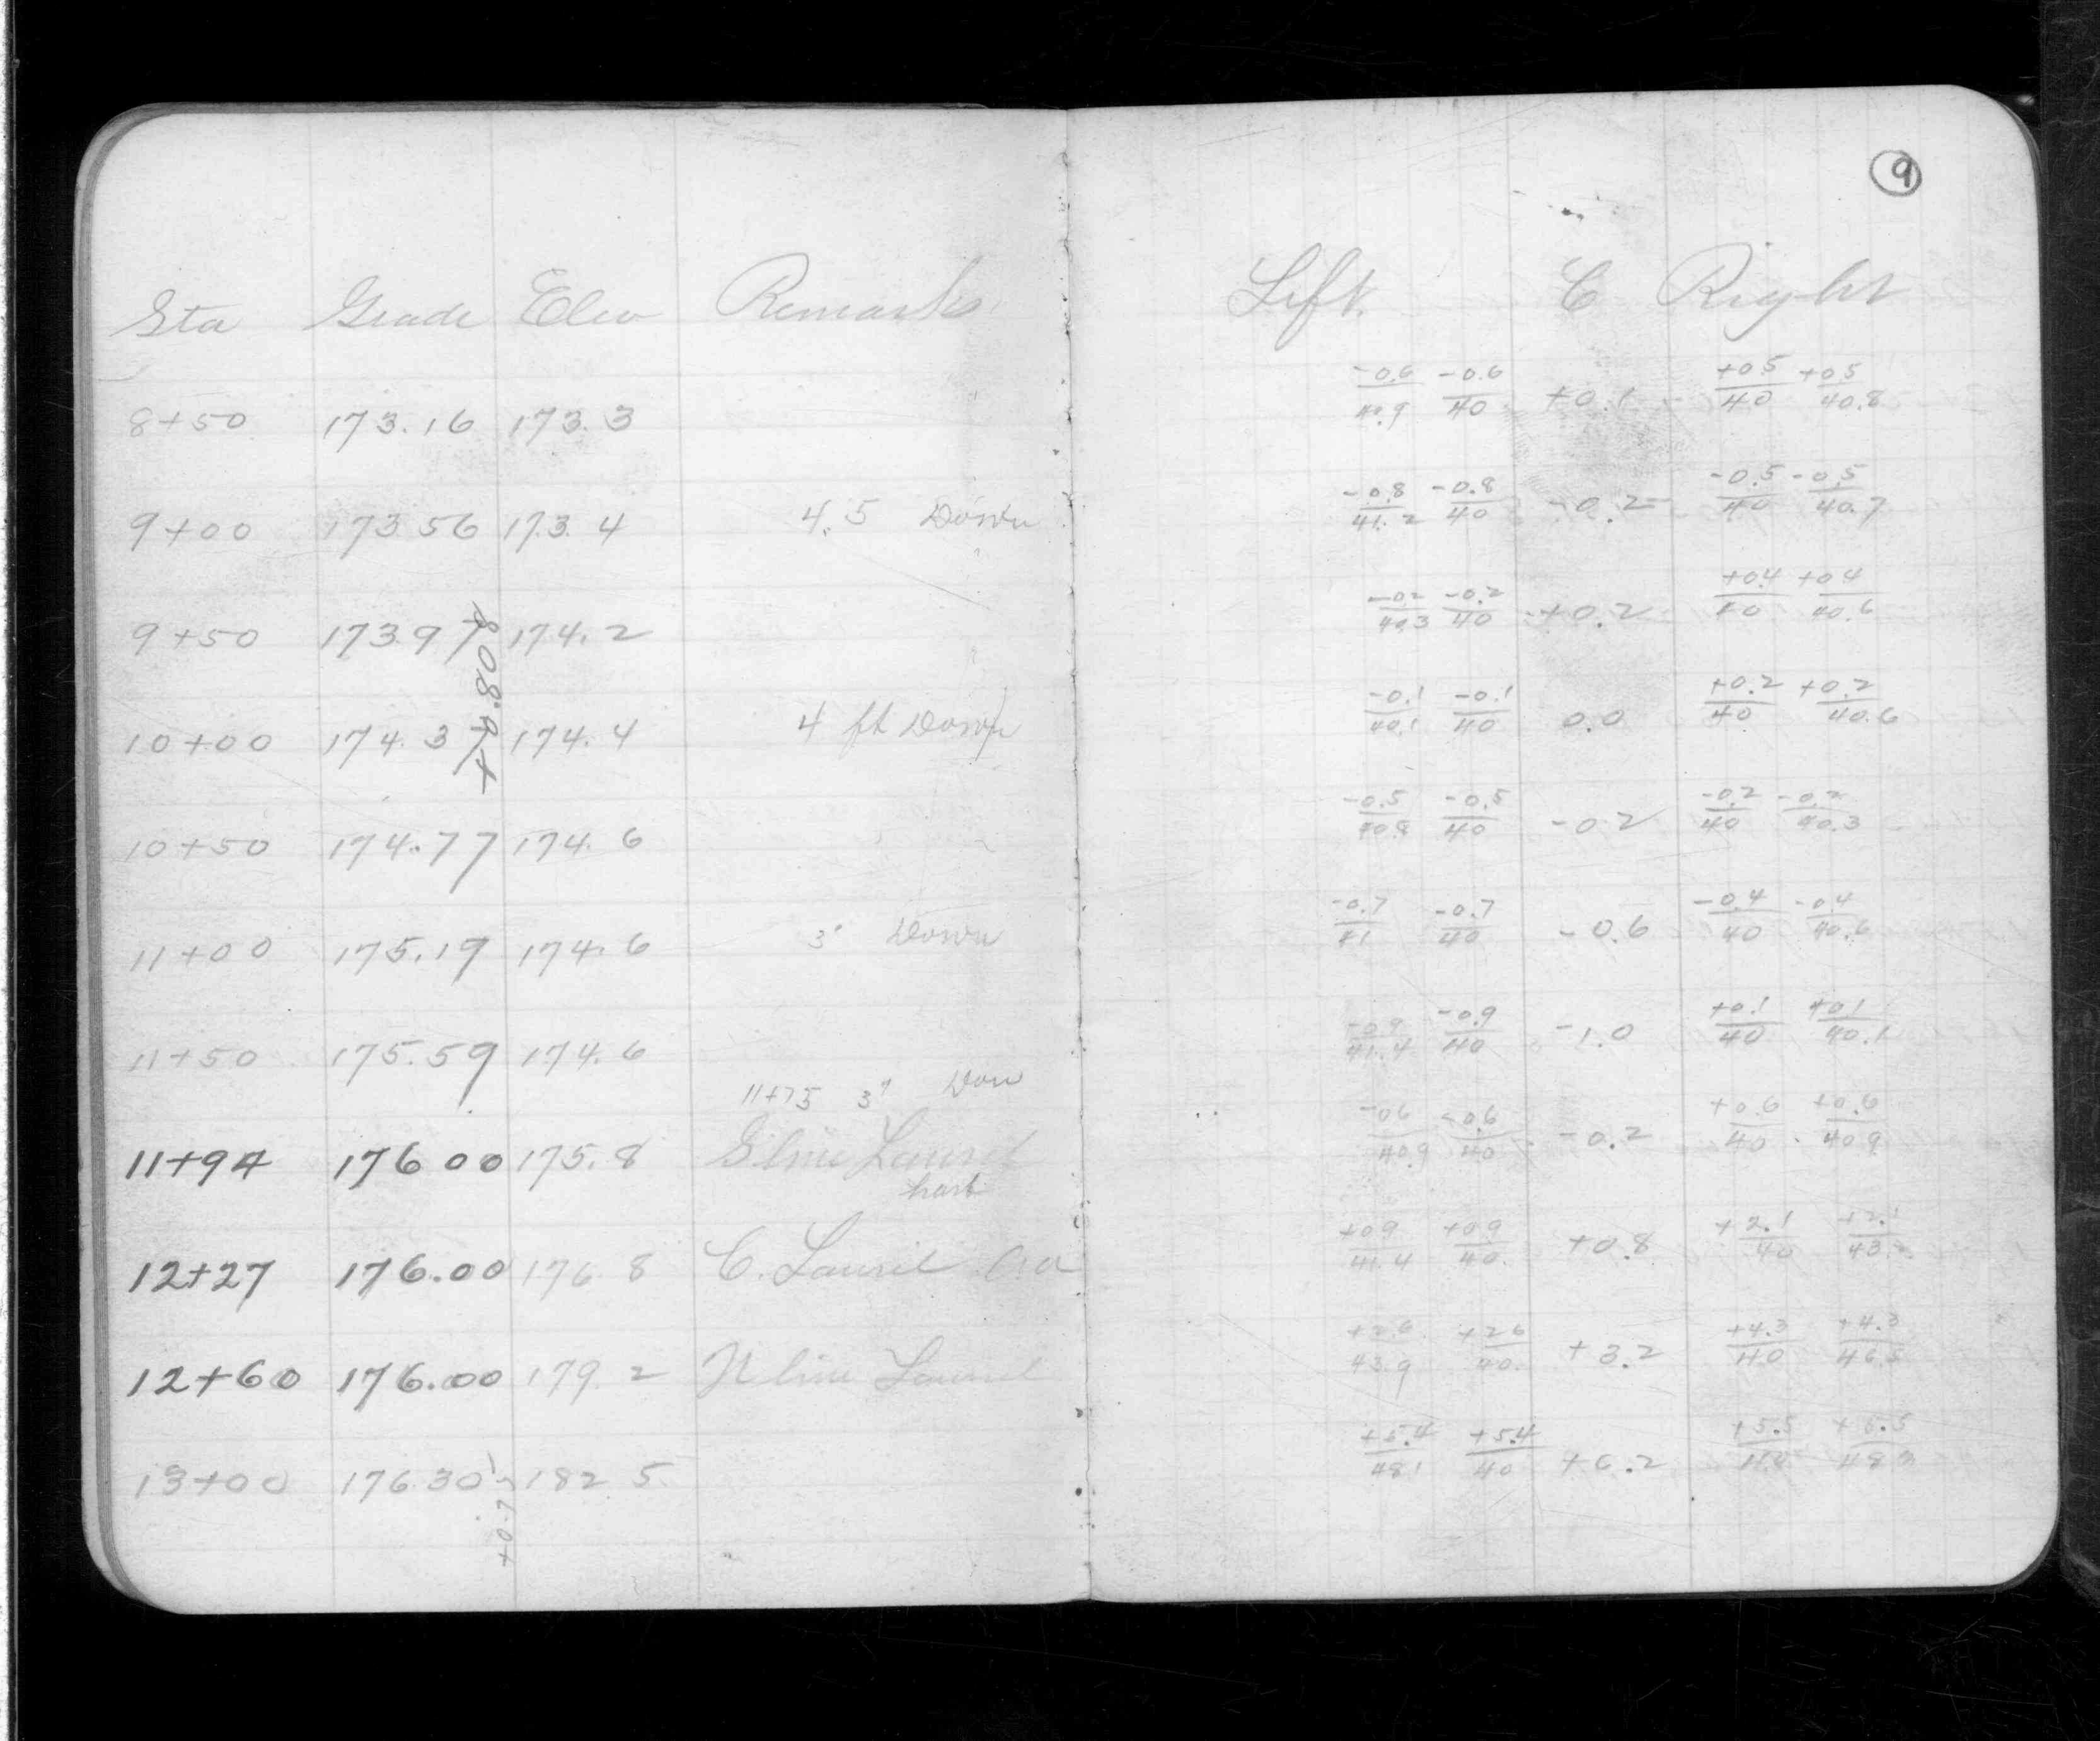 9
Sta Grade Elev Remarks Left C Right
-0.6 -0.6 +0.5 +0.5
8+50 173.16 173.3 +0.1
40.9 40 40 40.8
-0.8 -0.8 -0.5 -0.5
9+00 173 56 173.4 4.5 Down -0.2
41.2 40 40 40.7
-0.2 -0.2 +0.4 +0.4
9+50 173.97 174.2 +0.2
40.3 40 40 40.6
+0.808
-0.1 -0.1 +0.2 +0.2
10+00 174.37 174.4 4 ft Down 0.0
40.1 40 40 40.6
-0.5 -0.5 -0.2 -0.2
10+50 174.77 174.6 -0.2
40.8 40 40 40.3
-0.7 -0.7 -0.4 -0.4
11+00 175.19 174.6 3' Down -0.6
41 40 40 40.6
-0.9 -0.9 +0.1 +0.1
11+50 175.59 174.6 -1.0
41.4 40 40 40.1
11+75 3'
-0.6 -0.6 +0.6 +0.6
11+94 176 00 175.8 S line Laurel -0.2
40.9 40 40 40.9
+0.9 +0.9 +2.1 +2.1
12+27 176.00 176 8 C. Laurel +0.8
41.4 40. 40
+2.6 +2.6 +4.3 +4.3
12+60 176.00 179.2 N line Laurel +3.2
43.9 40. 40 46.5
+5.4 +5.4 +5.5
13+00 176.30 182 5 +6.2
48.1 40